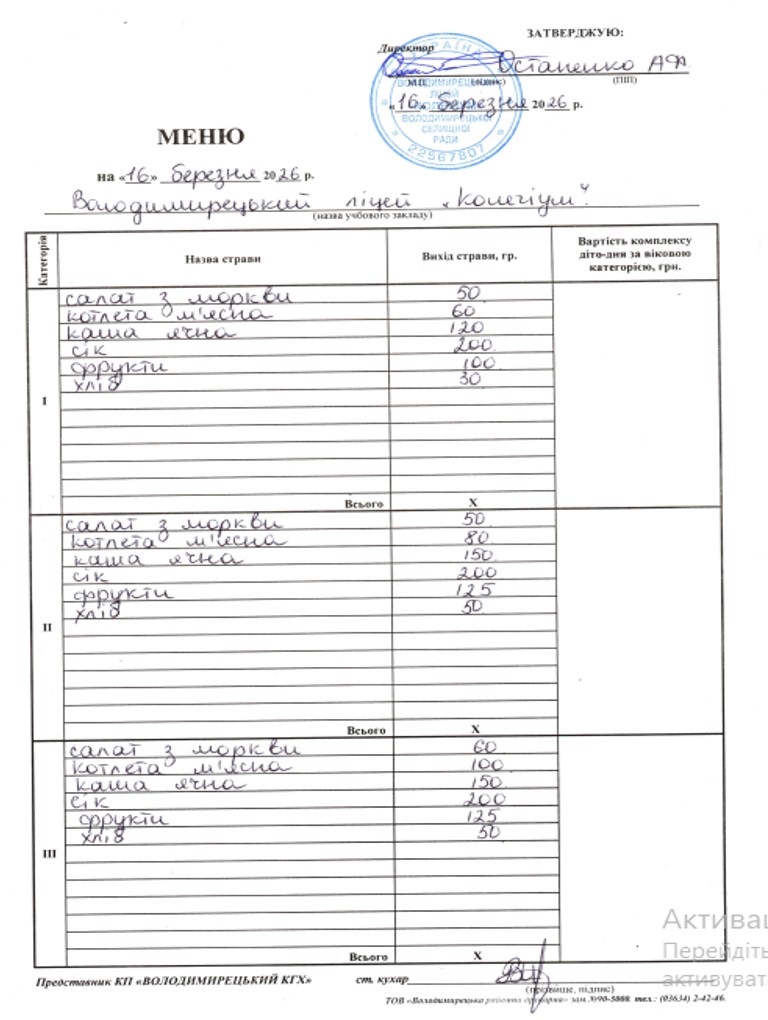 ЗАТВЕРДЖУЮ:
Директор
Остапенко А.Ф.
М.П. (підпис) (ПІП)
«16» березня 2026 р.
УКРАЇНА
ВОЛОДИМИРЕЦЬКИЙ
ЛІЦЕЙ
ВОЛОДИМИРЕЦЬКОЇ
СЕЛИЩНОЇ
РАДИ
22567807
МЕНЮ
на «16» березня 2026 р.
Володимирецький ліцей „Колегіум"
(назва учбового закладу)
Категорія Назва страви Вихід страви, гр. Вартість комплексу
діто-дня за віковою
категорією, грн.
I
салат з моркви 50
котлета м'ясна 60
каша ячна 120
сік 200
фрукти 100
хліб 30
Всього X
II
салат з моркви 50
котлета м'ясна 80
каша ячна 150
сік 200
фрукти 125
хліб 50
Всього X
III
салат з моркви 60
котлета м'ясна 100
каша ячна 150
сік 200
фрукти 125
хліб 50
Всього X
Представник КП «ВОЛОДИМИРЕЦЬКИЙ КГХ» ст. кухар
(прізвище, підпис)
ТОВ «Володимирецька друкарня» зам.№90-5000. тел.: (03634) 2-42-46.
Активац
Перейдіть
активуват